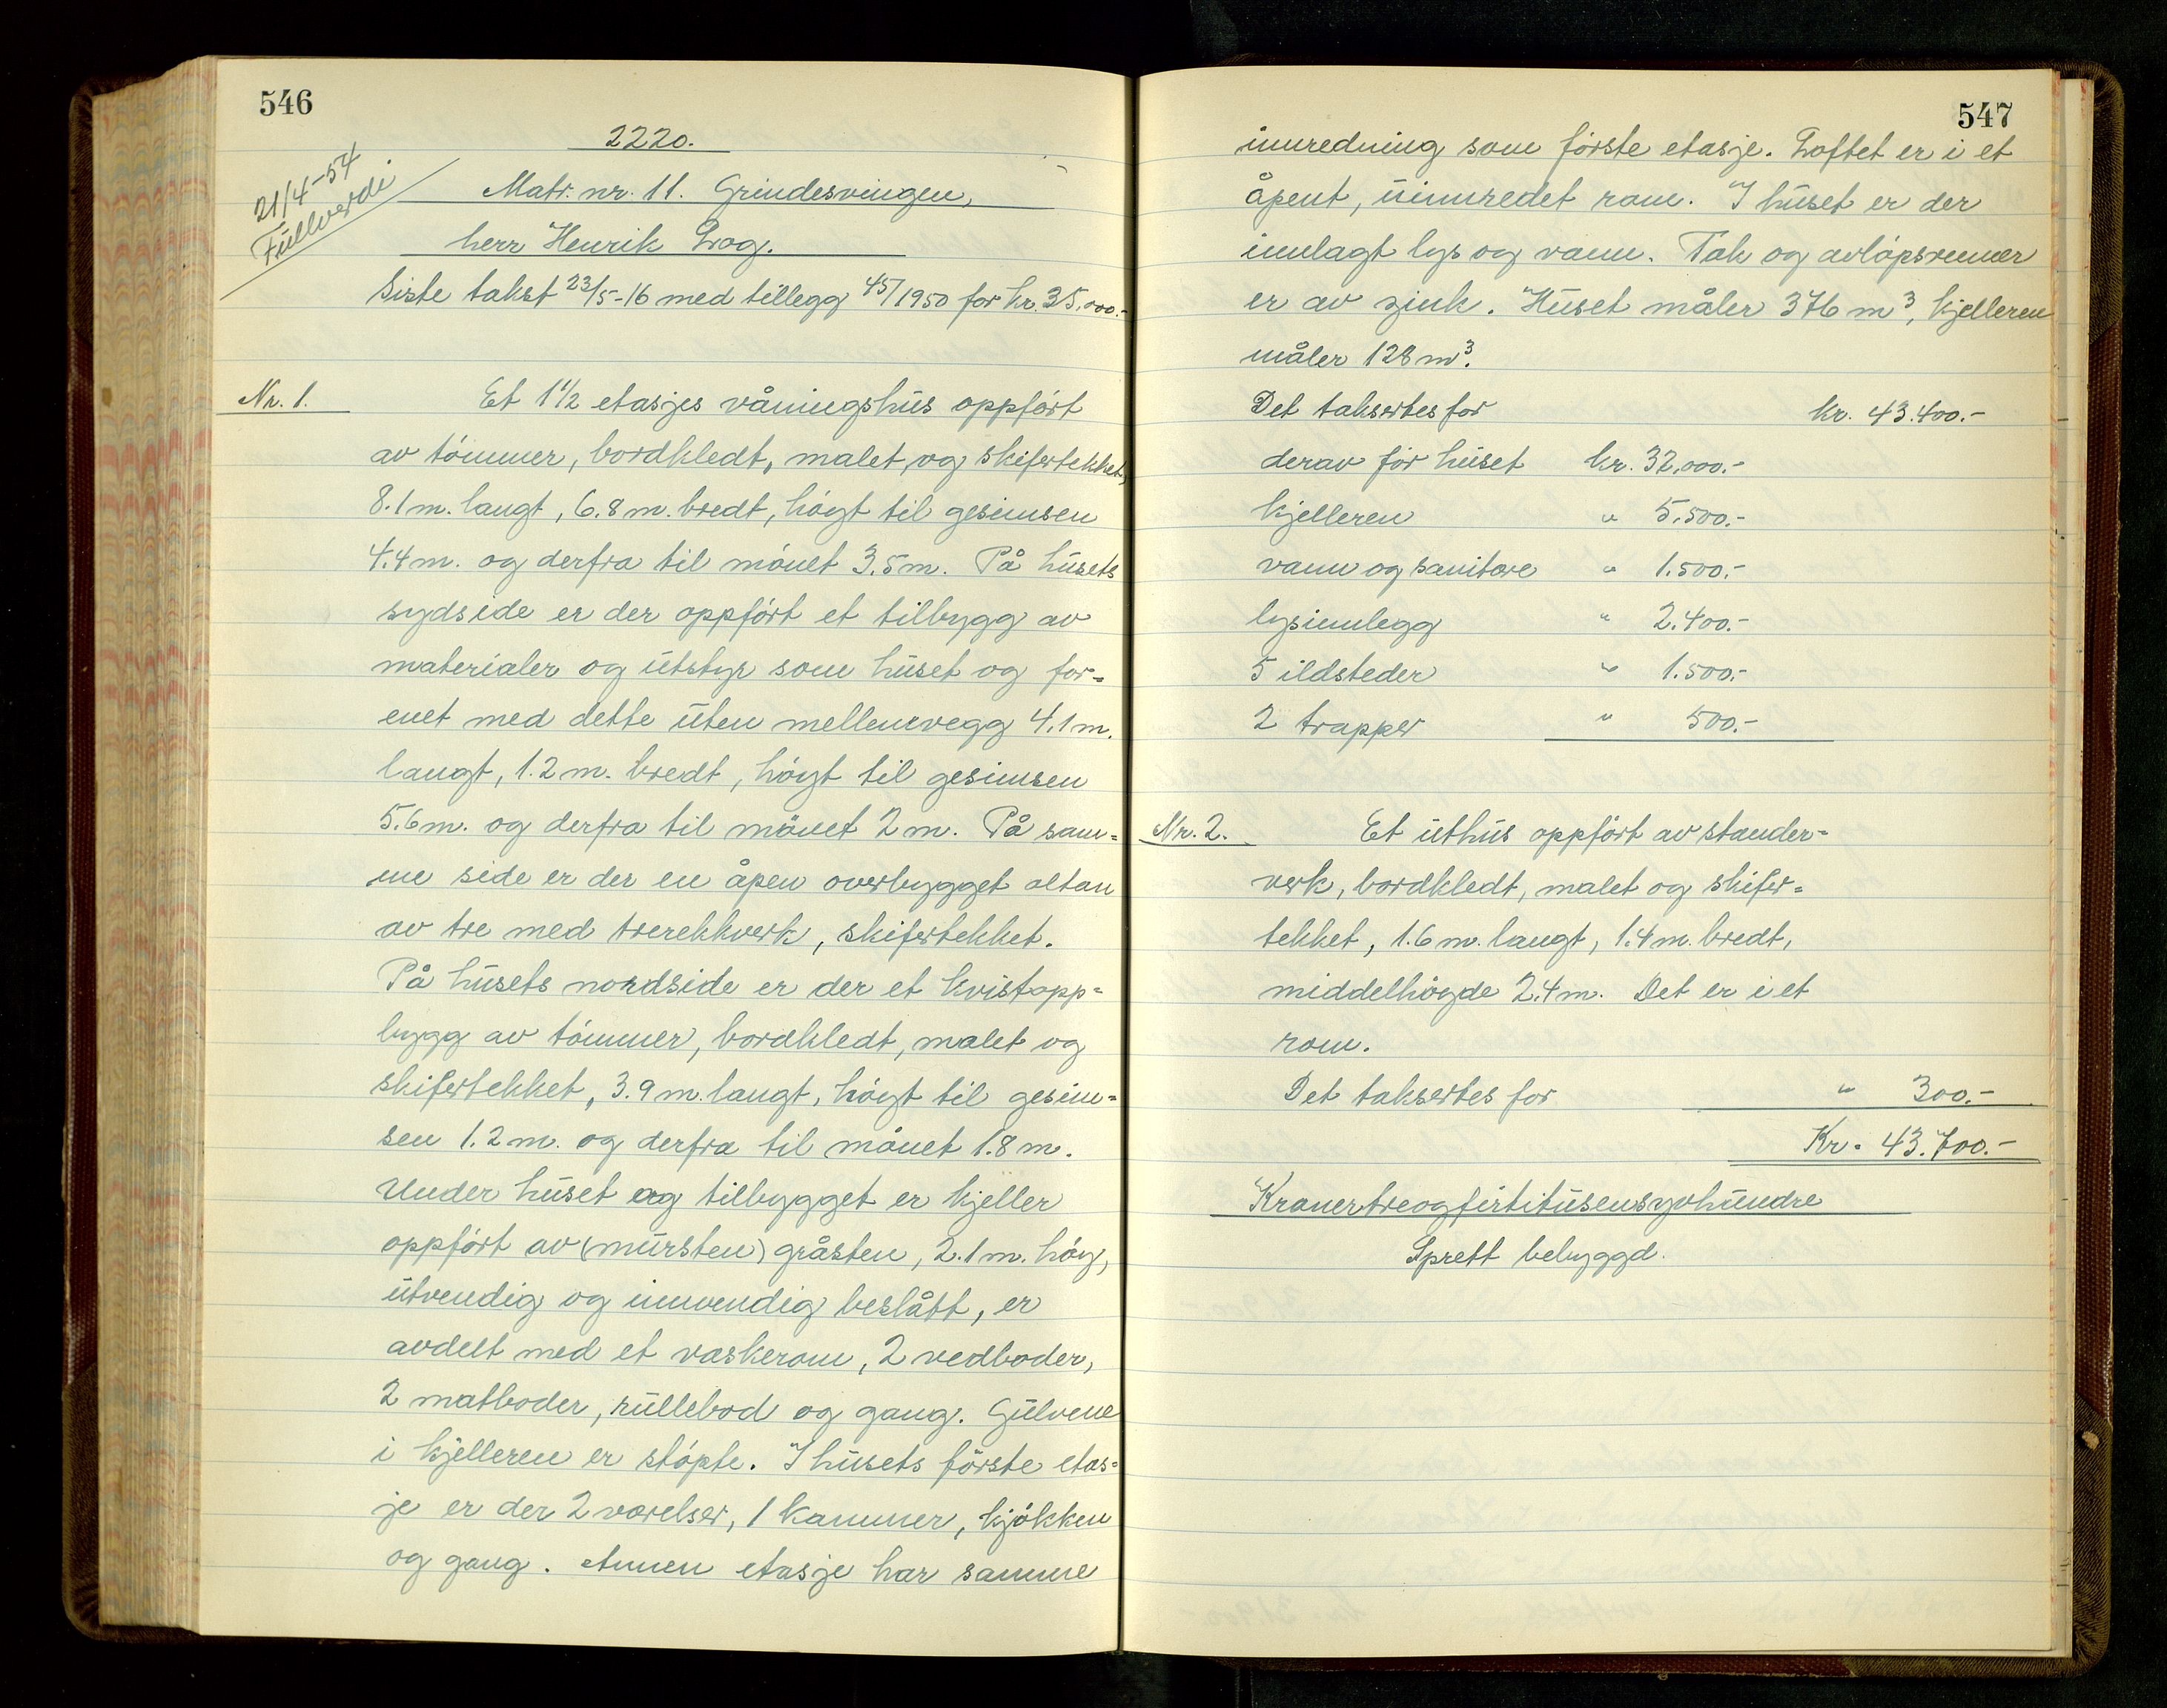 546
2220.
21/4-54
Fullverdi
Matr. nr. 11. Grindesvingen,
herr Henrik Prag.
Siste takst 23/5-16 med tillegg 45/1950 for kr. 35.000.-
Nr. 1.
Et 1 1/2 etasjes våningshus oppført
av tömmer, bordkledt, malet og skifertekket,
8.1 m. langt, 6.8 m. bredt, høyt til gesimsen
4.4 m. og derfra til mönet 3.5 m. På husets
sydside er der oppført et tilbygg av
materialer og utstyr som huset og for=
enet med dette uten mellemvegg 4.1 m.
langt, 1.2 m. bredt, høyt til gesimsen
5.6 m. og derfra til mönet 2 m. På sam=
me side er der en åpen overbygget altan
av tre med trerekkverk, skifertekket.
På husets nordside er der et kvistopp=
bygg av tömmer, bordkledt, malet og
skifertekket, 3.9 m. langt, høyt til gesim=
sen 1.2 m. og derfra til mönet 1.8 m.
Under huset og tilbygget er kjeller
oppført av (mursten) gråsten, 2.1 m. høy,
utvendig og innvendig beslått, er
avdelt med et vaskerom, 2 vedboder,
2 matboder, rullebod og gang. Gulvene
i kjelleren er støpte. I husets förste etas=
je er der 2 værelser, 1 kammer, kjøkken
og gang. Annen etasje har samme
547
innredning som förste etasje. Loftet er i et
åpent, uinnredet rom. I huset er der
innlagt lys og vann. Tak og avløpsrenner
er av zink. Huset måler 376 m3, kjelleren
måler 128 m3.
Det taksertes for kr. 43.400.-
derav for huset kr. 32.000.-
kjelleren " 5.500.-
vann og sanitære " 1.500.-
lysinnlegg " 2.400.-
5 ildsteder " 1.500.-
2 trapper " 500.-
Nr. 2.
Et uthus oppført av stander=
verk, bordkledt, malet og skifer=
tekket, 1.6 m. langt, 1.4 m. bredt,
middelhöyde 2.4 m. Det er i et
rom.
Det taksertes for " 300.-
Kr. 43.700.-
Kronertreogførtitusensyvhundre
Sprett bebyggd.